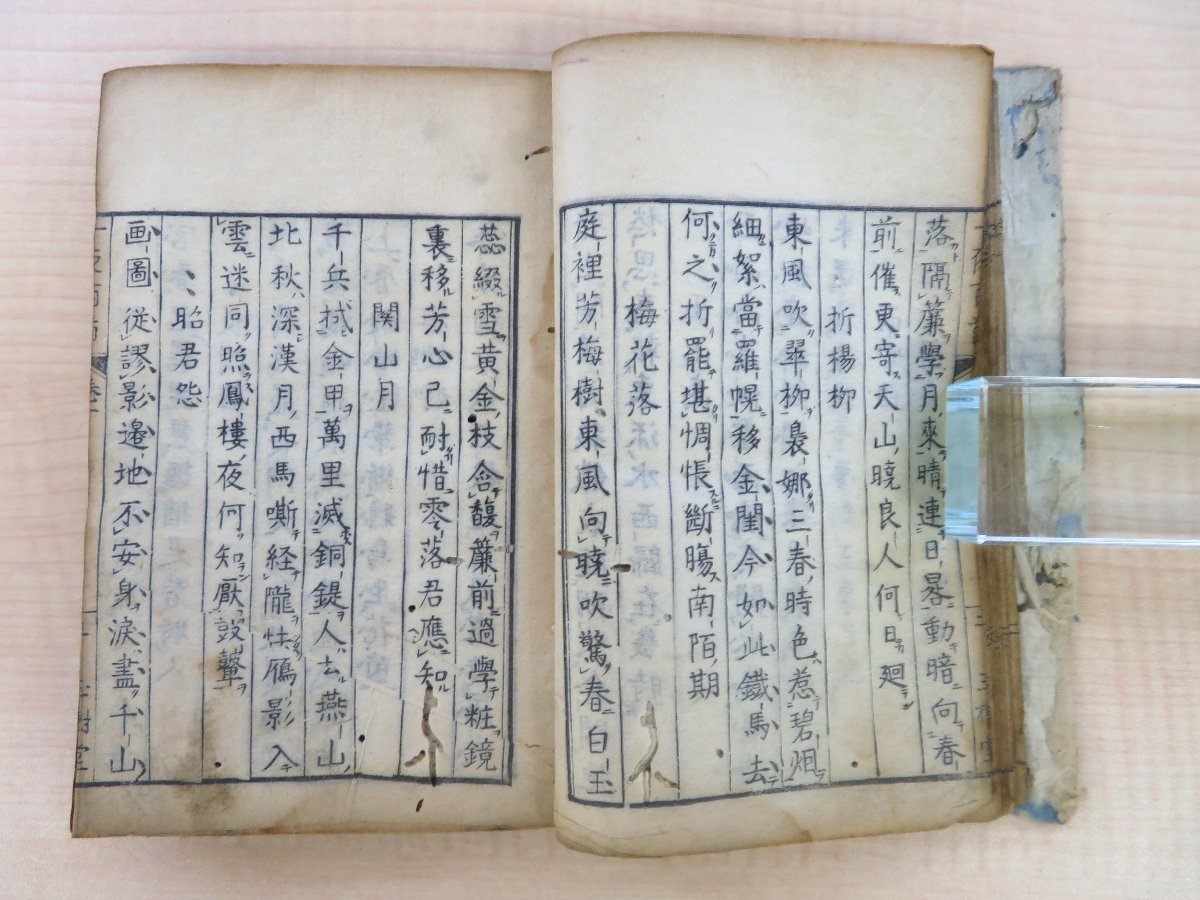 落隔簾學月來晴連日暑動暗向春
前催更寄天山曉良人何日廻
折楊柳
東風吹翠柳裊娜三春時色惹碧烟
細絮當羅幌移金閨今如此鐵馬去
何之折罷堪惆悵斷腸南陌期
梅花落
庭裡芳梅樹東風向曉吹驚春白玉
蕊綴雪黃金枝含馥簾前過學粧鏡
裏移芳心已耐惜零落君應知
関山月
千兵拭金甲萬里滅銅鍉人去燕山
北秋深漢月西馬嘶経隴怯鴈影入
雲迷同照鳳樓夜何知厭鼓鼙
昭君怨
画圖従謬影邉地不安身淚盡千山